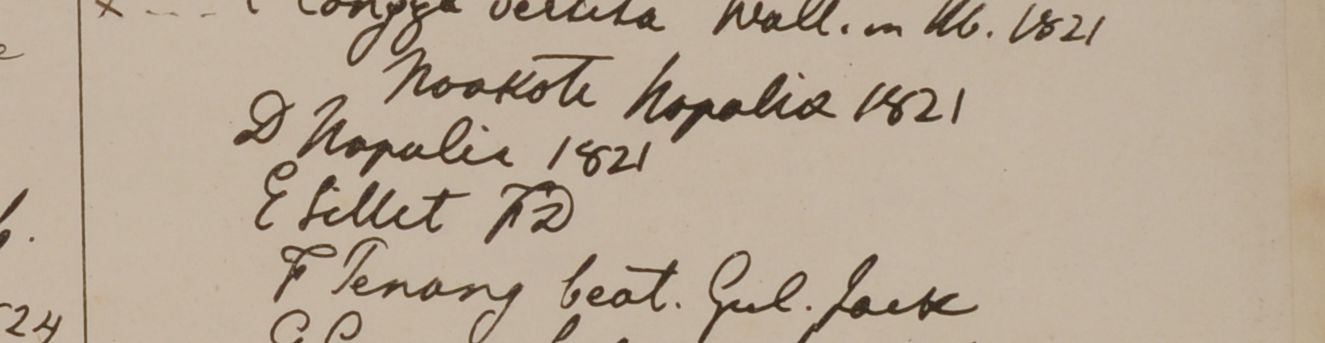 x - - - C Congea vestita Wall. in hb. 1821
Noakote Napalia 1821
D Napalia 1821
E Sillet FD
F Penang beat. Gul. Jack
24